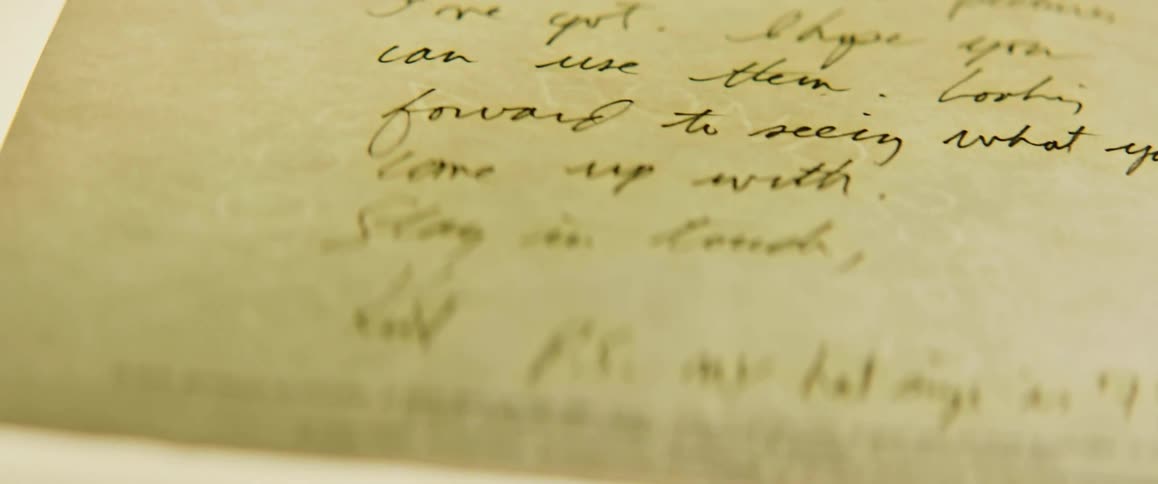 I've got. I hope you
can use them. Looking
forward to seeing what
come up with.
Stay in touch,
P.S. my hat size is